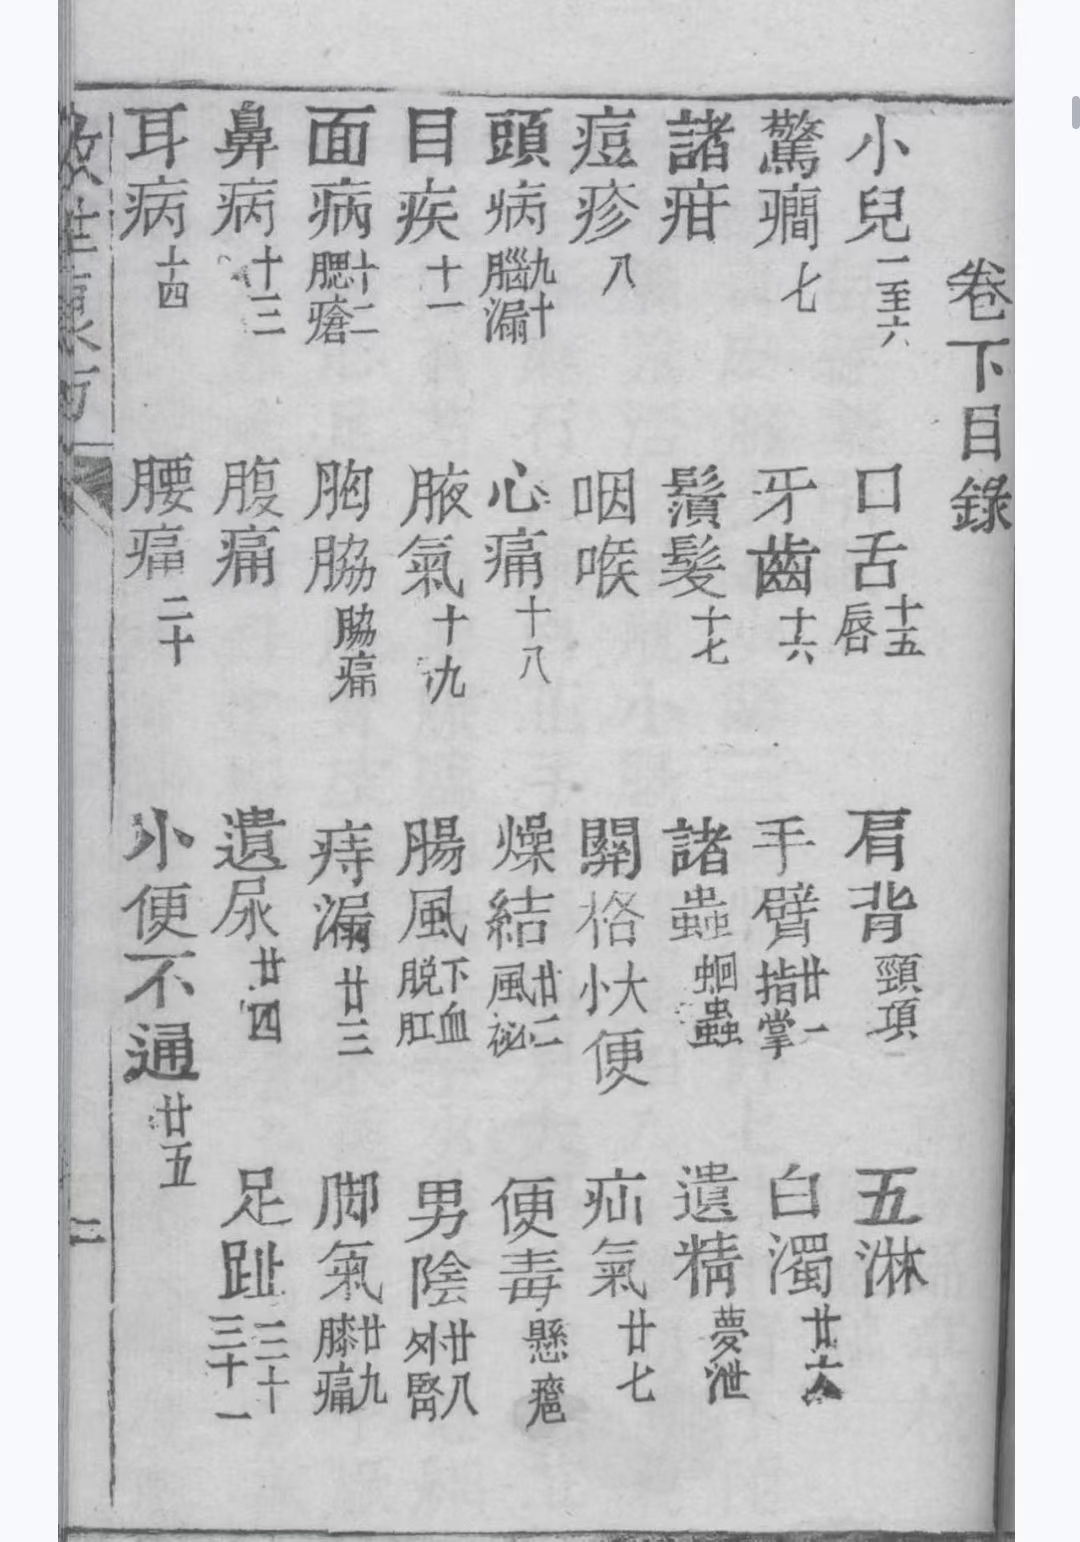 卷下目錄
小兒 一至六
驚癇 七
諸疳
痘疹 八
頭病 九十 腦漏
目疾 十一
面病 十二 腮瘡
鼻病 十三
耳病 十四
口舌 十五 唇
牙齒 十六
鬚髮 十七
咽喉
心痛 十八
腋氣 十九
胸脇 脇痛
腹痛
腰痛 二十
肩背 頸項
手臂 廿一 指掌
諸蟲 蛔蟲
關格 大小便
燥結 廿二 風祕
腸風 下血 脱肛
痔漏 廿三
遺尿 廿四
小便不通 廿五
五淋
白濁 廿六
遺精 夢泄
疝氣 廿七
便毒 懸
男陰 廿八 外腎
脚氣 廿九 膝痛
足趾 三十 三十一
二